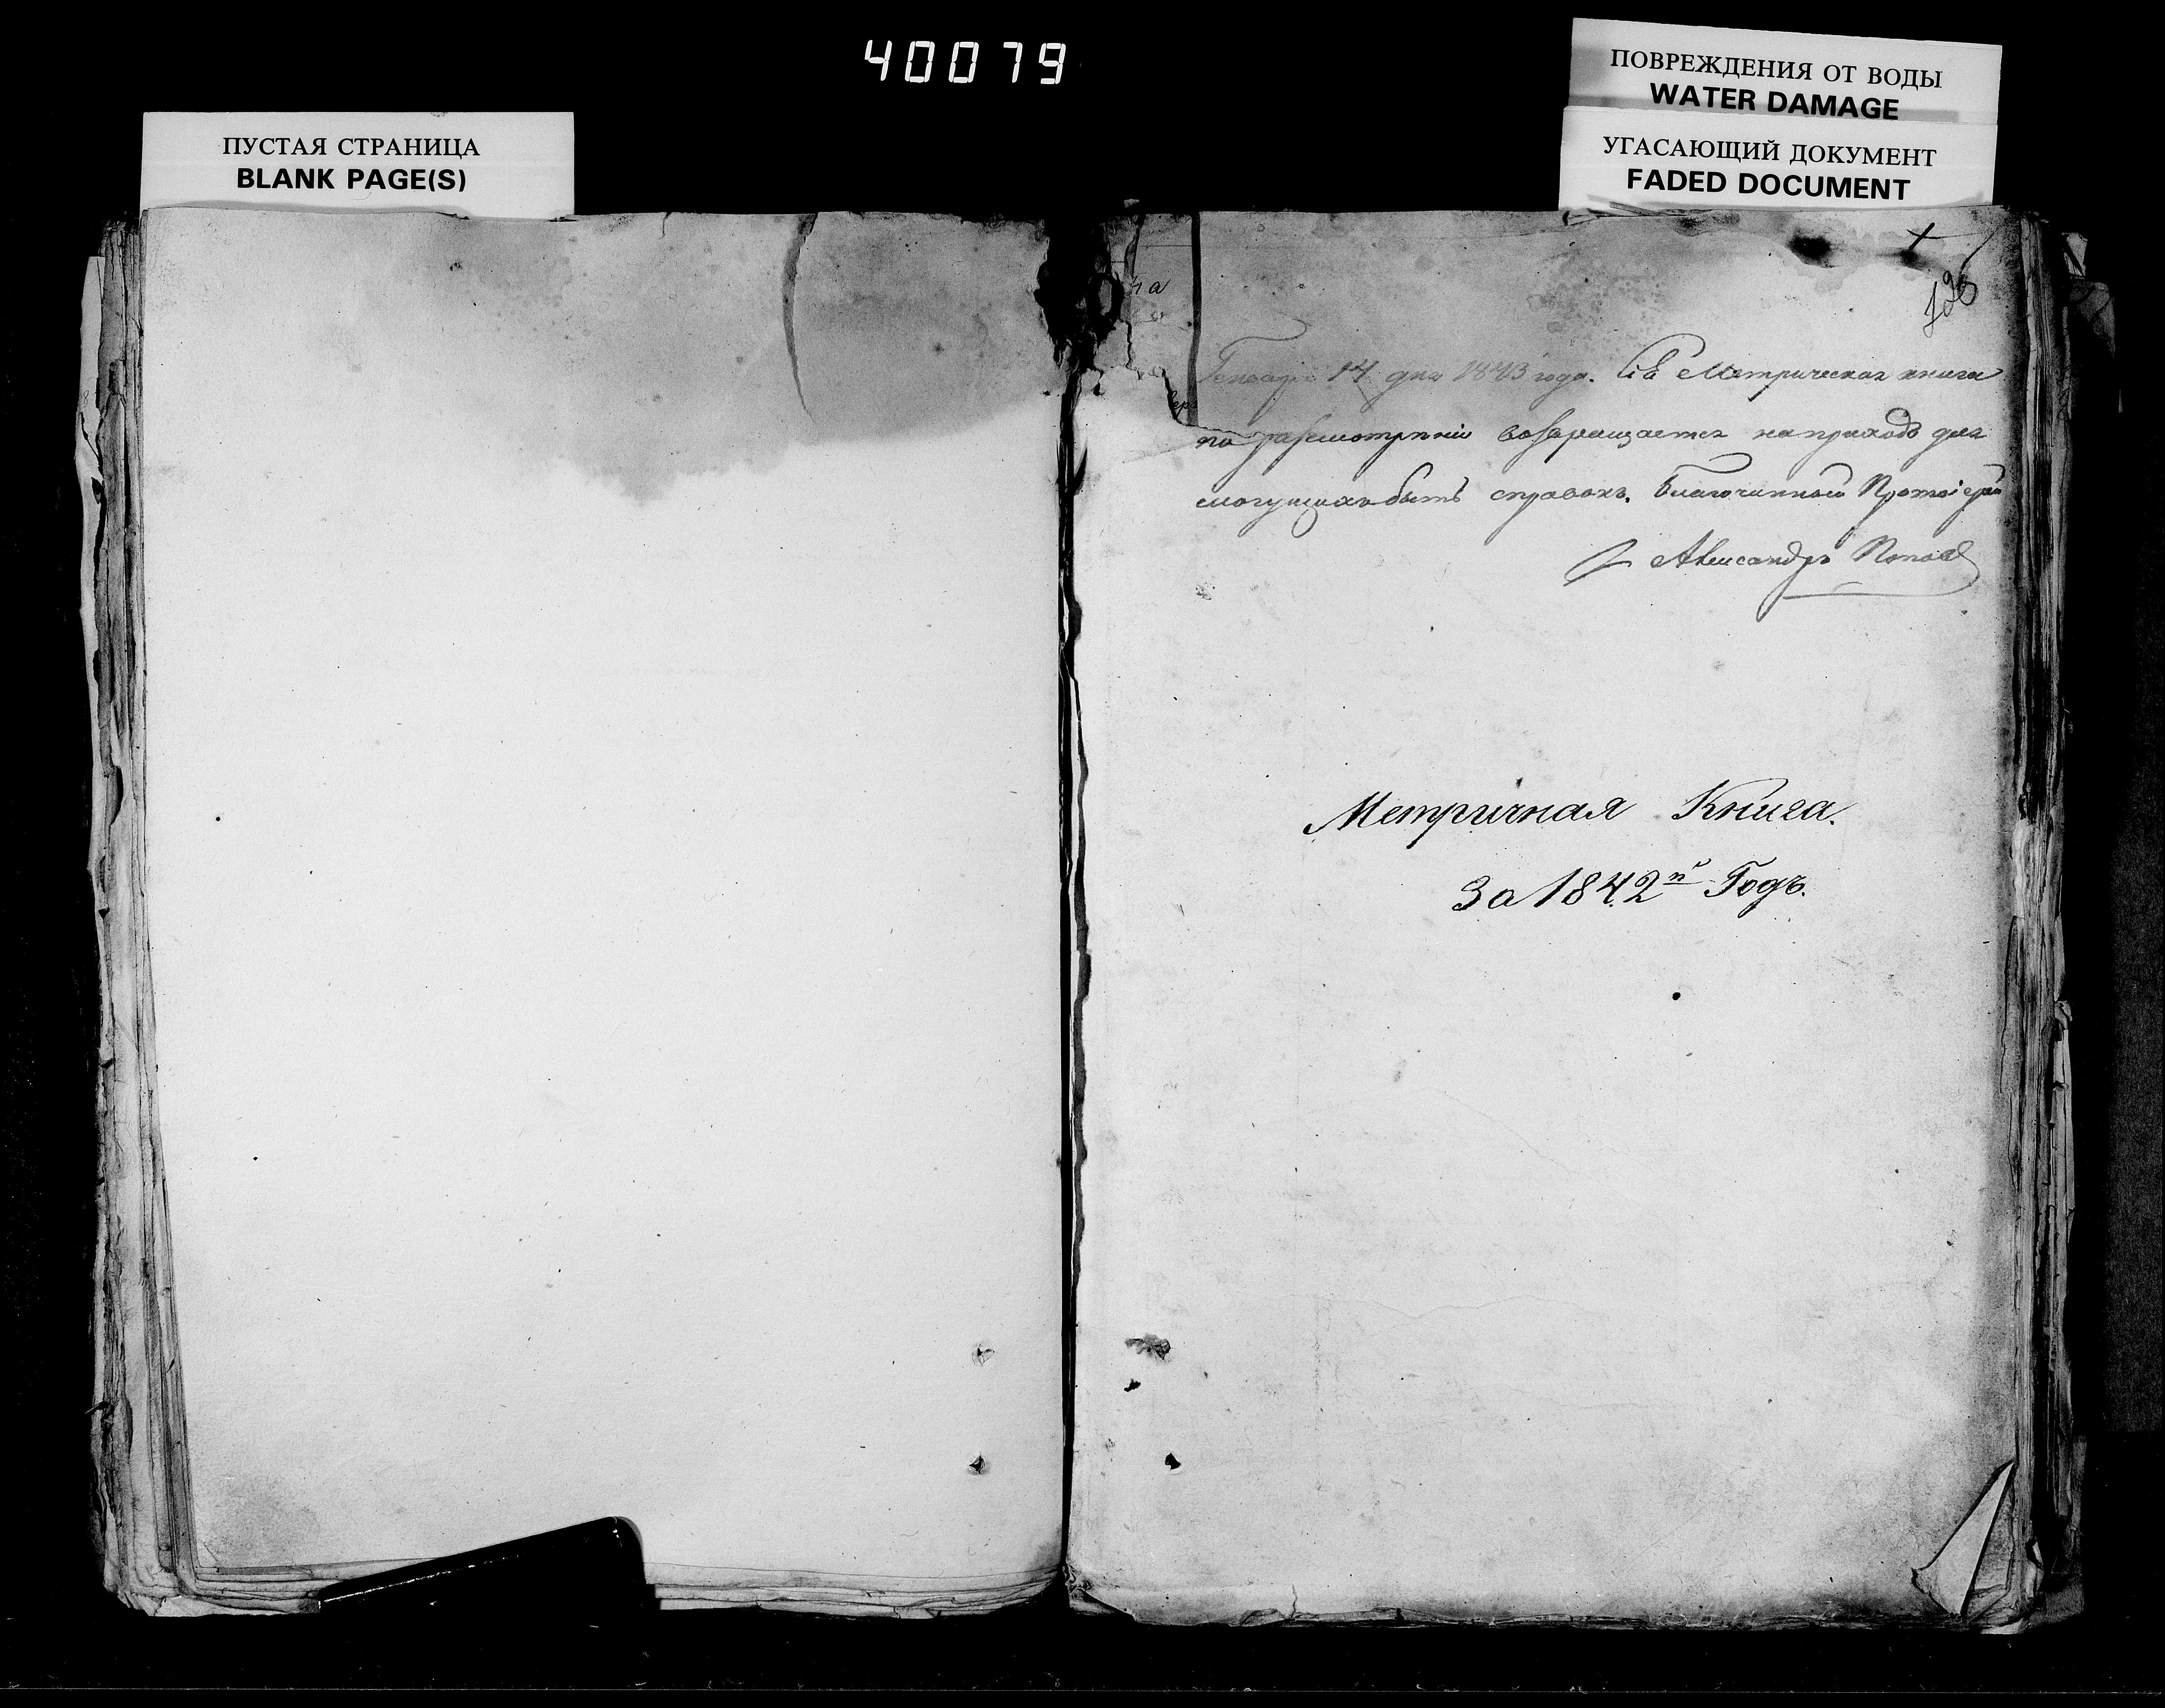 40079
ПУСТАЯ СТРАНИЦА
BLANK PAGE(S)
ПОВРЕЖДЕНИЯ ОТ ВОДЫ
WATER DAMAGE
УГАСАЮЩИЙ ДОКУМЕНТ
FADED DOCUMENT
Генваря 14 дня 1843 года. Сія Метрическая книга
по разсмотрѣніи возвращается на приходъ для
могущихъ быть справокъ. Благочинный Протоіерей
Александръ Поповъ
Метричная Книга.
За 1842й Годъ.